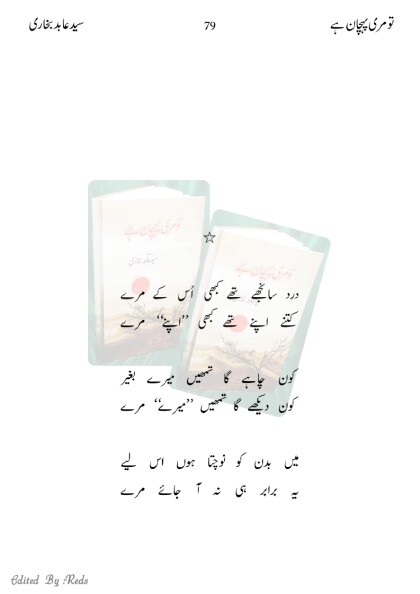 تو مری پہچان ہے 79 سید عابد بخاری
☆
درد سانجھے تھے کبھی اُس کے مرے
کتنے اپنے تھے کبھی ’’اپنے‘‘ مرے
کون چاہے گا تمھیں میرے بغیر
کون دیکھے گا تمھیں ’’میرے‘‘ مرے
میں بدن کو نوچتا ہوں اس لیے
یہ برابر ہی نہ آ جائے مرے
Edited By Reds